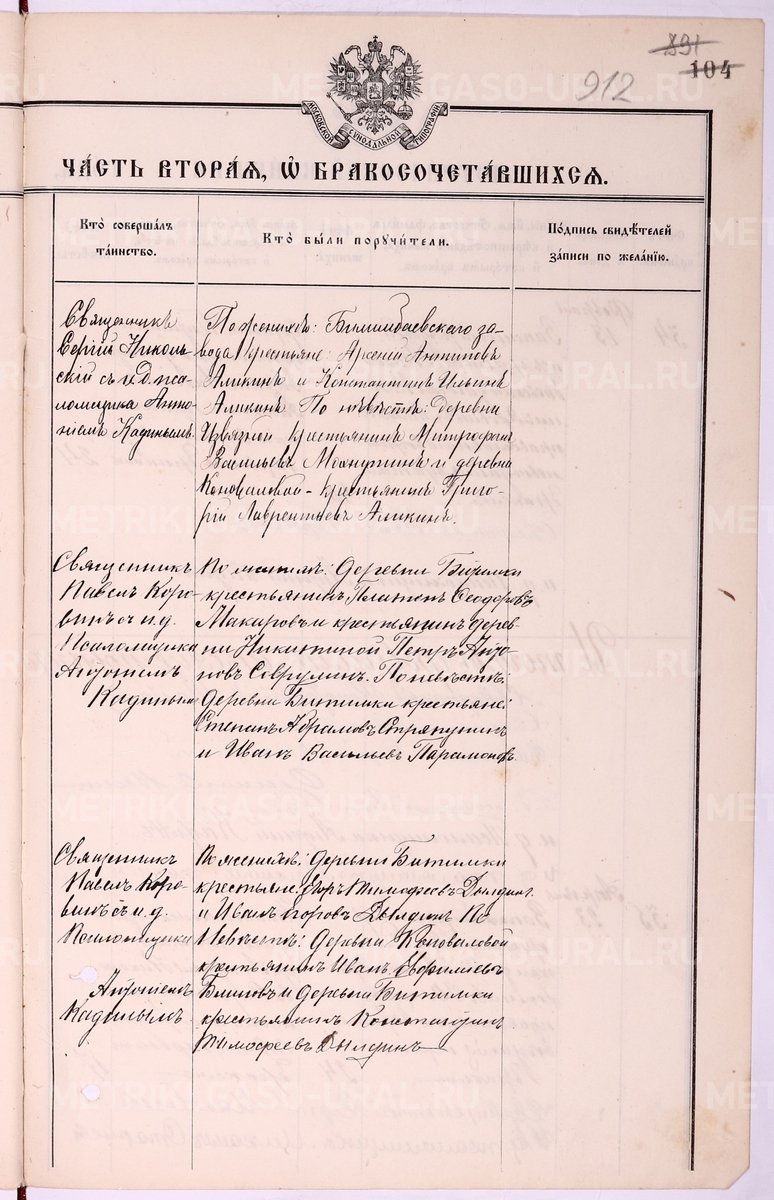 891
104
912
МОСКОВСКОЙ СѴНОДАЛЬНОЙ ТИПОГРАФІИ
ЧА́СТЬ ВТОРА́Я, Ѡ҆ БРАКОСОЧЕТА́ВШИХСЯ.
Кто̀ соверша́лъ
та́инство.
Кто̀ бы́ли поручи́тели.
По́дпись свидѣ́телей
за́писи по жела́нїю.
Священникъ
Сергій Николь-
скій съ и.д. пса-
ломщика Анто-
ніемъ Кадинымъ.
По женихѣ: Билимбаевскаго за-
вода крестьяне: Арсеній Антиповъ
Аликинъ и Константинъ Ильинъ
Аликинъ По невѣстѣ: деревни
Извязной крестьянинъ Митрофанъ
Васильевъ и деревни
Коноваловой - крестьянинъ Григо-
рій Лаврентьевъ Аликинъ.
Священникъ
Павелъ Коро-
винъ съ и.д.
Псаломщика
Антоніемъ
Кадинымъ
По женихѣ: Деревни Битимки
крестьянинъ Платонъ Ѳеодоровъ
Макаровъ и крестьянинъ дерев-
ни Никитиной Петръ Анто-
новъ По невѣстѣ:
Деревни Битимки крестьяне:
Степанъ Абрамовъ Стряпунинъ
и Иванъ Васильевъ Парамоновъ.
Священникъ
Павелъ Коро-
винъ съ и.д.
Псаломщика
Антоніемъ
Кадинымъ
По женихѣ: деревни Битимки
крестьяне: Егоръ Тимофеевъ Дылдинъ
и Иванъ Егоровъ Дылдинъ По
Невѣстѣ: деревни Коноваловой
крестьянинъ Иванъ
Блиновъ и деревни Битимки
крестьянинъ Константинъ
Тимофеевъ Дылдинъ
METRIKI.GASO-URAL.RU